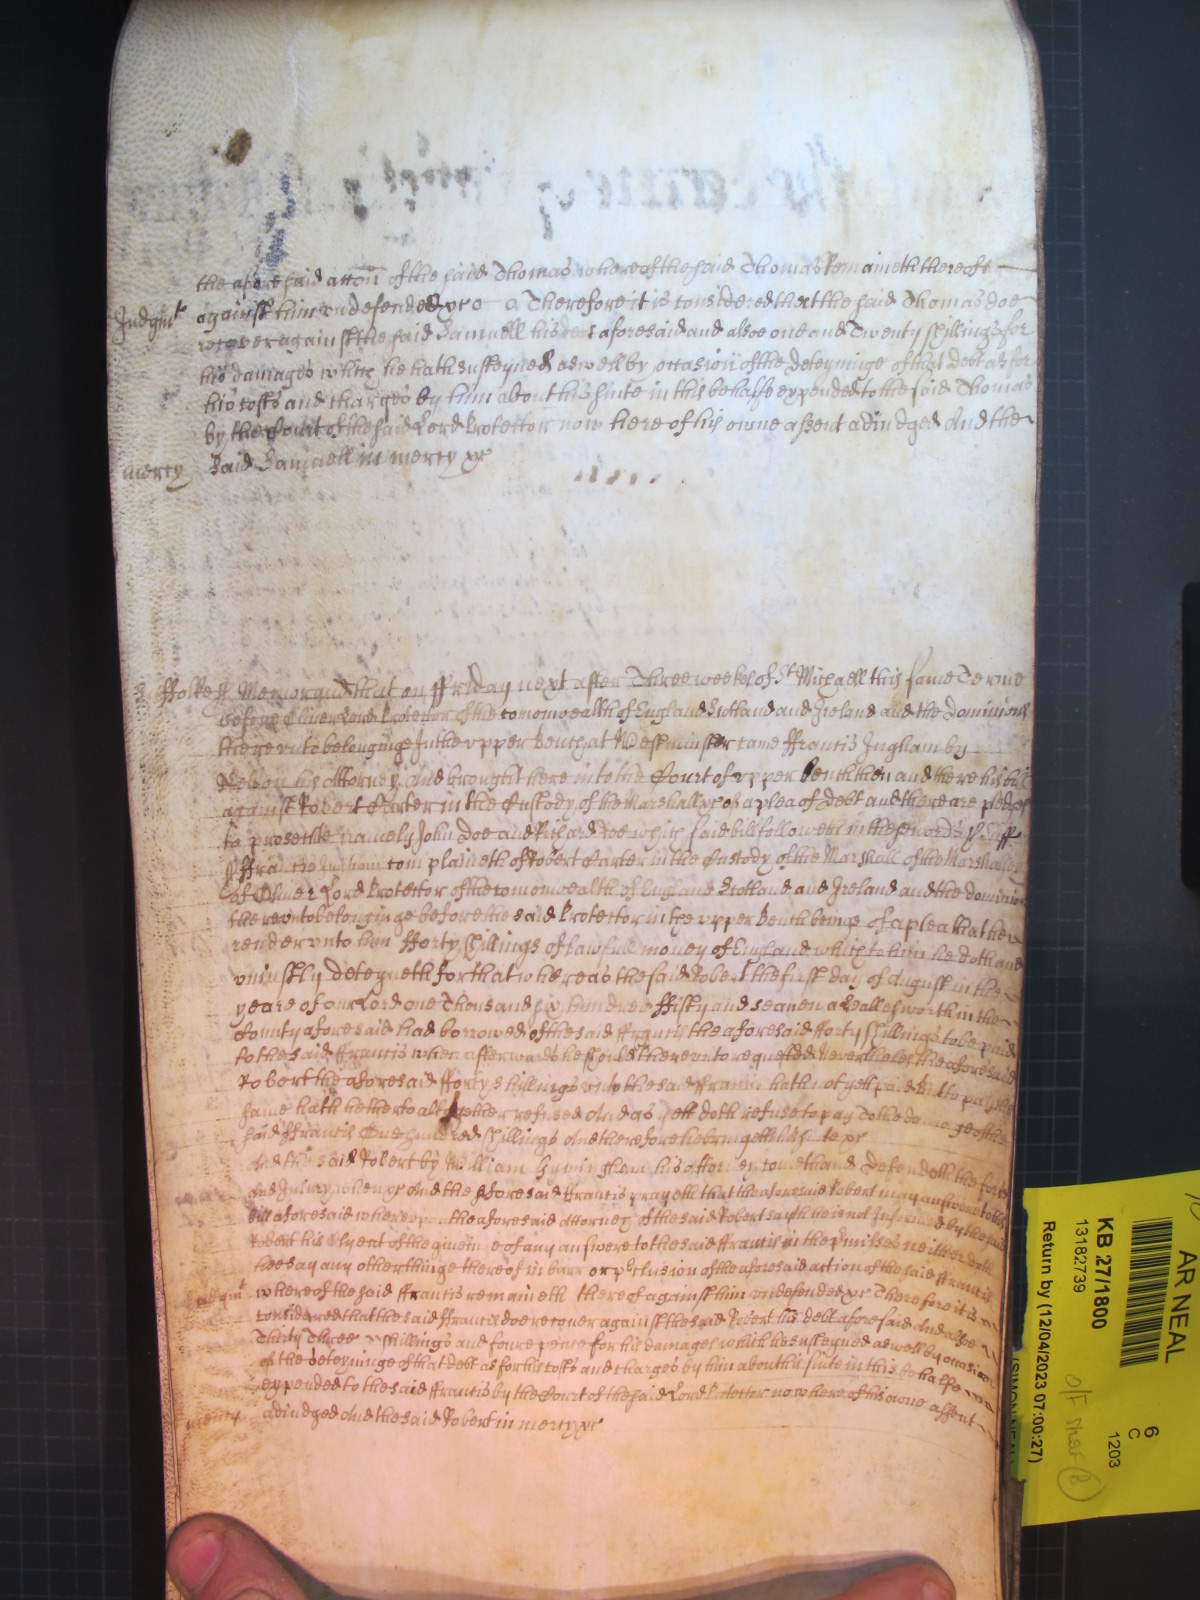 the aforesaid attorn of the said Thomas whereof the said Thomas Remaineth thereof
Judgmt against him undefended &c Therefore it is considered that the said Thomas doe
recover against the said Samuell his debt aforesaid and alsoe one and Twenty shillings for
his damages which he hath susteyned aswell by occasion of the deteyninge of that debt as for
his costs and charges by him about his suite in this behalfe expended to the said Thomas
by the Court of the said Lord Protector now here of his owne assent adiudged And the
mercy Said Samuell in mercy &c
Memorand that on ffriday next after Three weekes of St Michaell this same Terme
before Oliver Lord Protector of the comonwealth of England Scotland and Ireland and the dominions
thereunto belonginge In the upper bench at Westminster came ffrancis Ingham by
Nelson his Attorney And brought here into the Court of upper bench then and there his bill
against Robert Carter in the Custody of the Marshall &c of a plea of debt and there are pledges
to prosecute namely John Doe and Richard Roe which said bill followeth in these words
ss ffrancis Ingham complaineth of Robert Carter in the Custody of the Marshall of the Marshalsey
of Oliver Lord Protector of the comonwealth of England Scotland and Ireland and the dominions
thereunto belonginge before the said Protector in the upper bench beinge of a plea that he
render unto him fforty shillings of lawfull money of England which to him he oweth and
uniustly deteyneth for that whereas the said Robert the first day of August in the
yeare of our Lord one Thousand six hundred ffifty and seaven at in the
County aforesaid had borrowed of the said ffrancis the aforesaid fforty shillings to be paid
to the said ffrancis when afterwards he should thereunto requested Neverthelesse the aforesaid
Robert the aforesaid fforty shillings unto the said ffrancis hath not yett paid But to pay the
same hath hetherto altogether refused And as yett doth refuse to pay To the damage of the
said ffrancis One hundred shillings And therefore he bringeth his suite &c
And the said Robert by William his attorney cometh and Defendeth the force
and Iniury when &c And the aforesaid ffrancis prayeth that the aforesaid Robert may answere to his
bill aforesaid whereupon the aforesaid Attorney of the said Robert saith he is not Informed by the said
Robert his Clyent of the giveinge of any answere to the said ffrancis in the p'misses neither doth
hee say any other thinge thereof in barr or p'clusion of the aforesaid action of the said ffrancis
Judgmt whereof the said ffrancis remaineth thereof against him undefended &c Therefore it is
considered that the said ffrancis doe recover against the said Robert his debt aforesaid And alsoe
Thirty Three shillings and foure pence for his damages which he susteyned aswell by occasion
of the deteyninge of that debt as for his costs and charges by him about his suite in this behalfe
expended to the said ffrancis by the Court of the said Lord Protector now here of his owne assent
mercy adiudged And the said Robert in mercy &c
AR NEAL
6
C
1203
KB 27/1800
13182739
Return by (12/04/2023 07:00:27)